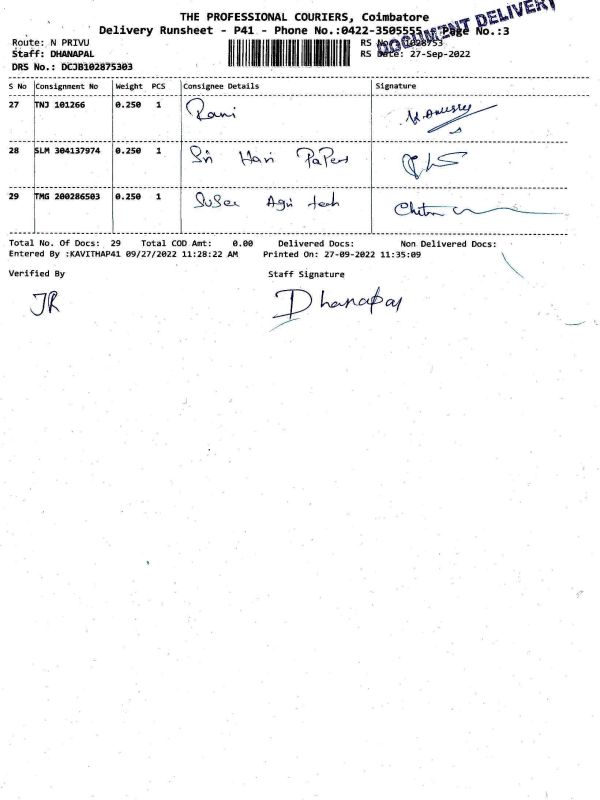 THE PROFESSIONAL COURIERS, Coimbatore
DOCUMENT DELIVERY
Delivery Runsheet - P41 - Phone No.:0422-3505555 Page No.:3
Route: N PRIVU RS No.: 1028753
Staff: DHANAPAL RS Date: 27-Sep-2022
DRS No.: DCJB102875303
S No Consignment No Weight PCS Consignee Details Signature
27 TNJ 101266 0.250 1 Rani
28 SLM 304137974 0.250 1 Sri Hari Papers
29 TMG 200286503 0.250 1 Suser Agri tech Chitra
Total No. Of Docs: 29 Total COD Amt: 0.00 Delivered Docs: Non Delivered Docs:
Entered By :KAVITHAP41 09/27/2022 11:28:22 AM Printed On: 27-09-2022 11:35:09
Verified By Staff Signature
JR Dhanapal